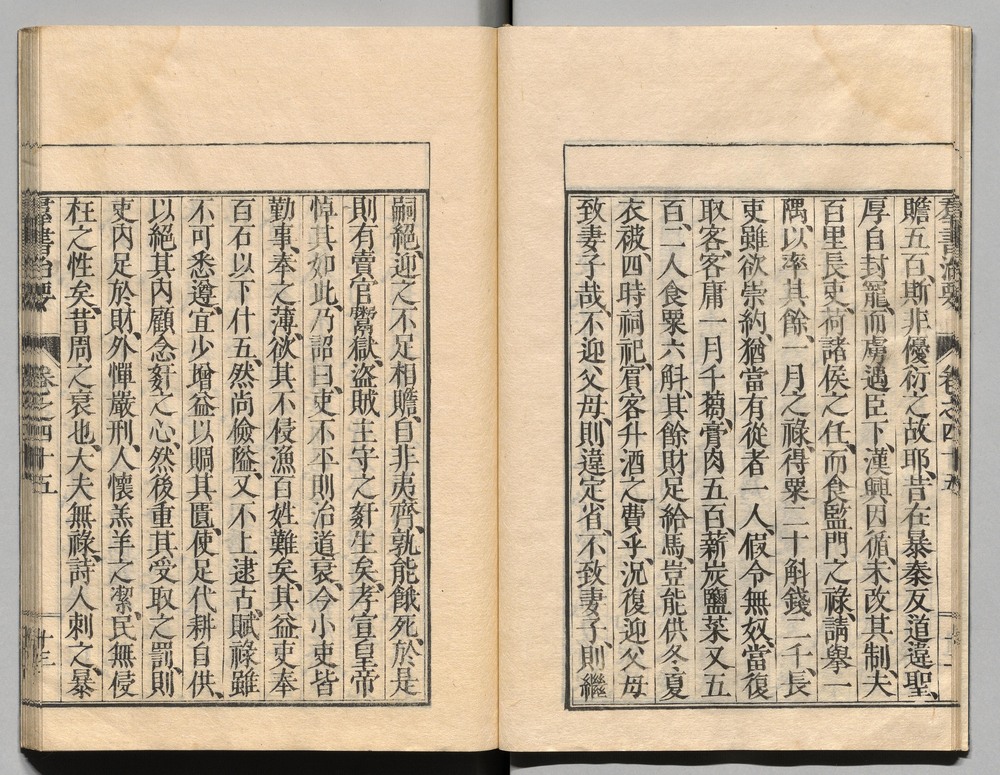 羣書治要 卷之四十五
贍五百、斯非優衍之故耶、昔在暴秦反道違聖、
厚自封寵、而虜遇臣下、漢興因循、未改其制、夫
百里長吏、荷諸侯之任、而食監門之祿、請舉一
隅、以率其餘、一月之祿、得粟二十斛錢二千、長
吏雖欲崇約、猶當有從者一人、假令無奴、當復
取客、客庸一月千、蒭膏肉五百、薪炭鹽菜又五
百、二人食粟六斛、其餘財足給馬、豈能供冬夏
衣被、四時祠祀、賓客升酒之費乎、況復迎父母
致妻子哉、不迎父母、則違定省、不致妻子、則繼
嗣絕、迎之不足相贍、自非夷齊、孰能餓死、於是
則有賣官鬻獄、盜賊主守之姧生矣、孝宣皇帝
悼其如此、乃詔曰、吏不平則治道衰、今小吏皆
勤事、奉之薄、欲其不侵漁百姓難矣、其益吏奉
百石以下什五、然尚儉隘、又不上逮古、賦祿雖
不可悉遵、宜少增益以賙其匱、使足代耕自供、
以絕其內顧念姧之心、然後重其受取之罰、則
吏內足於財、外憚嚴刑、人懷羔羊之潔、民無侵
枉之性矣、昔周之衰也、大夫無祿、詩人刺之、暴
羣書治要 卷之四十五 十三